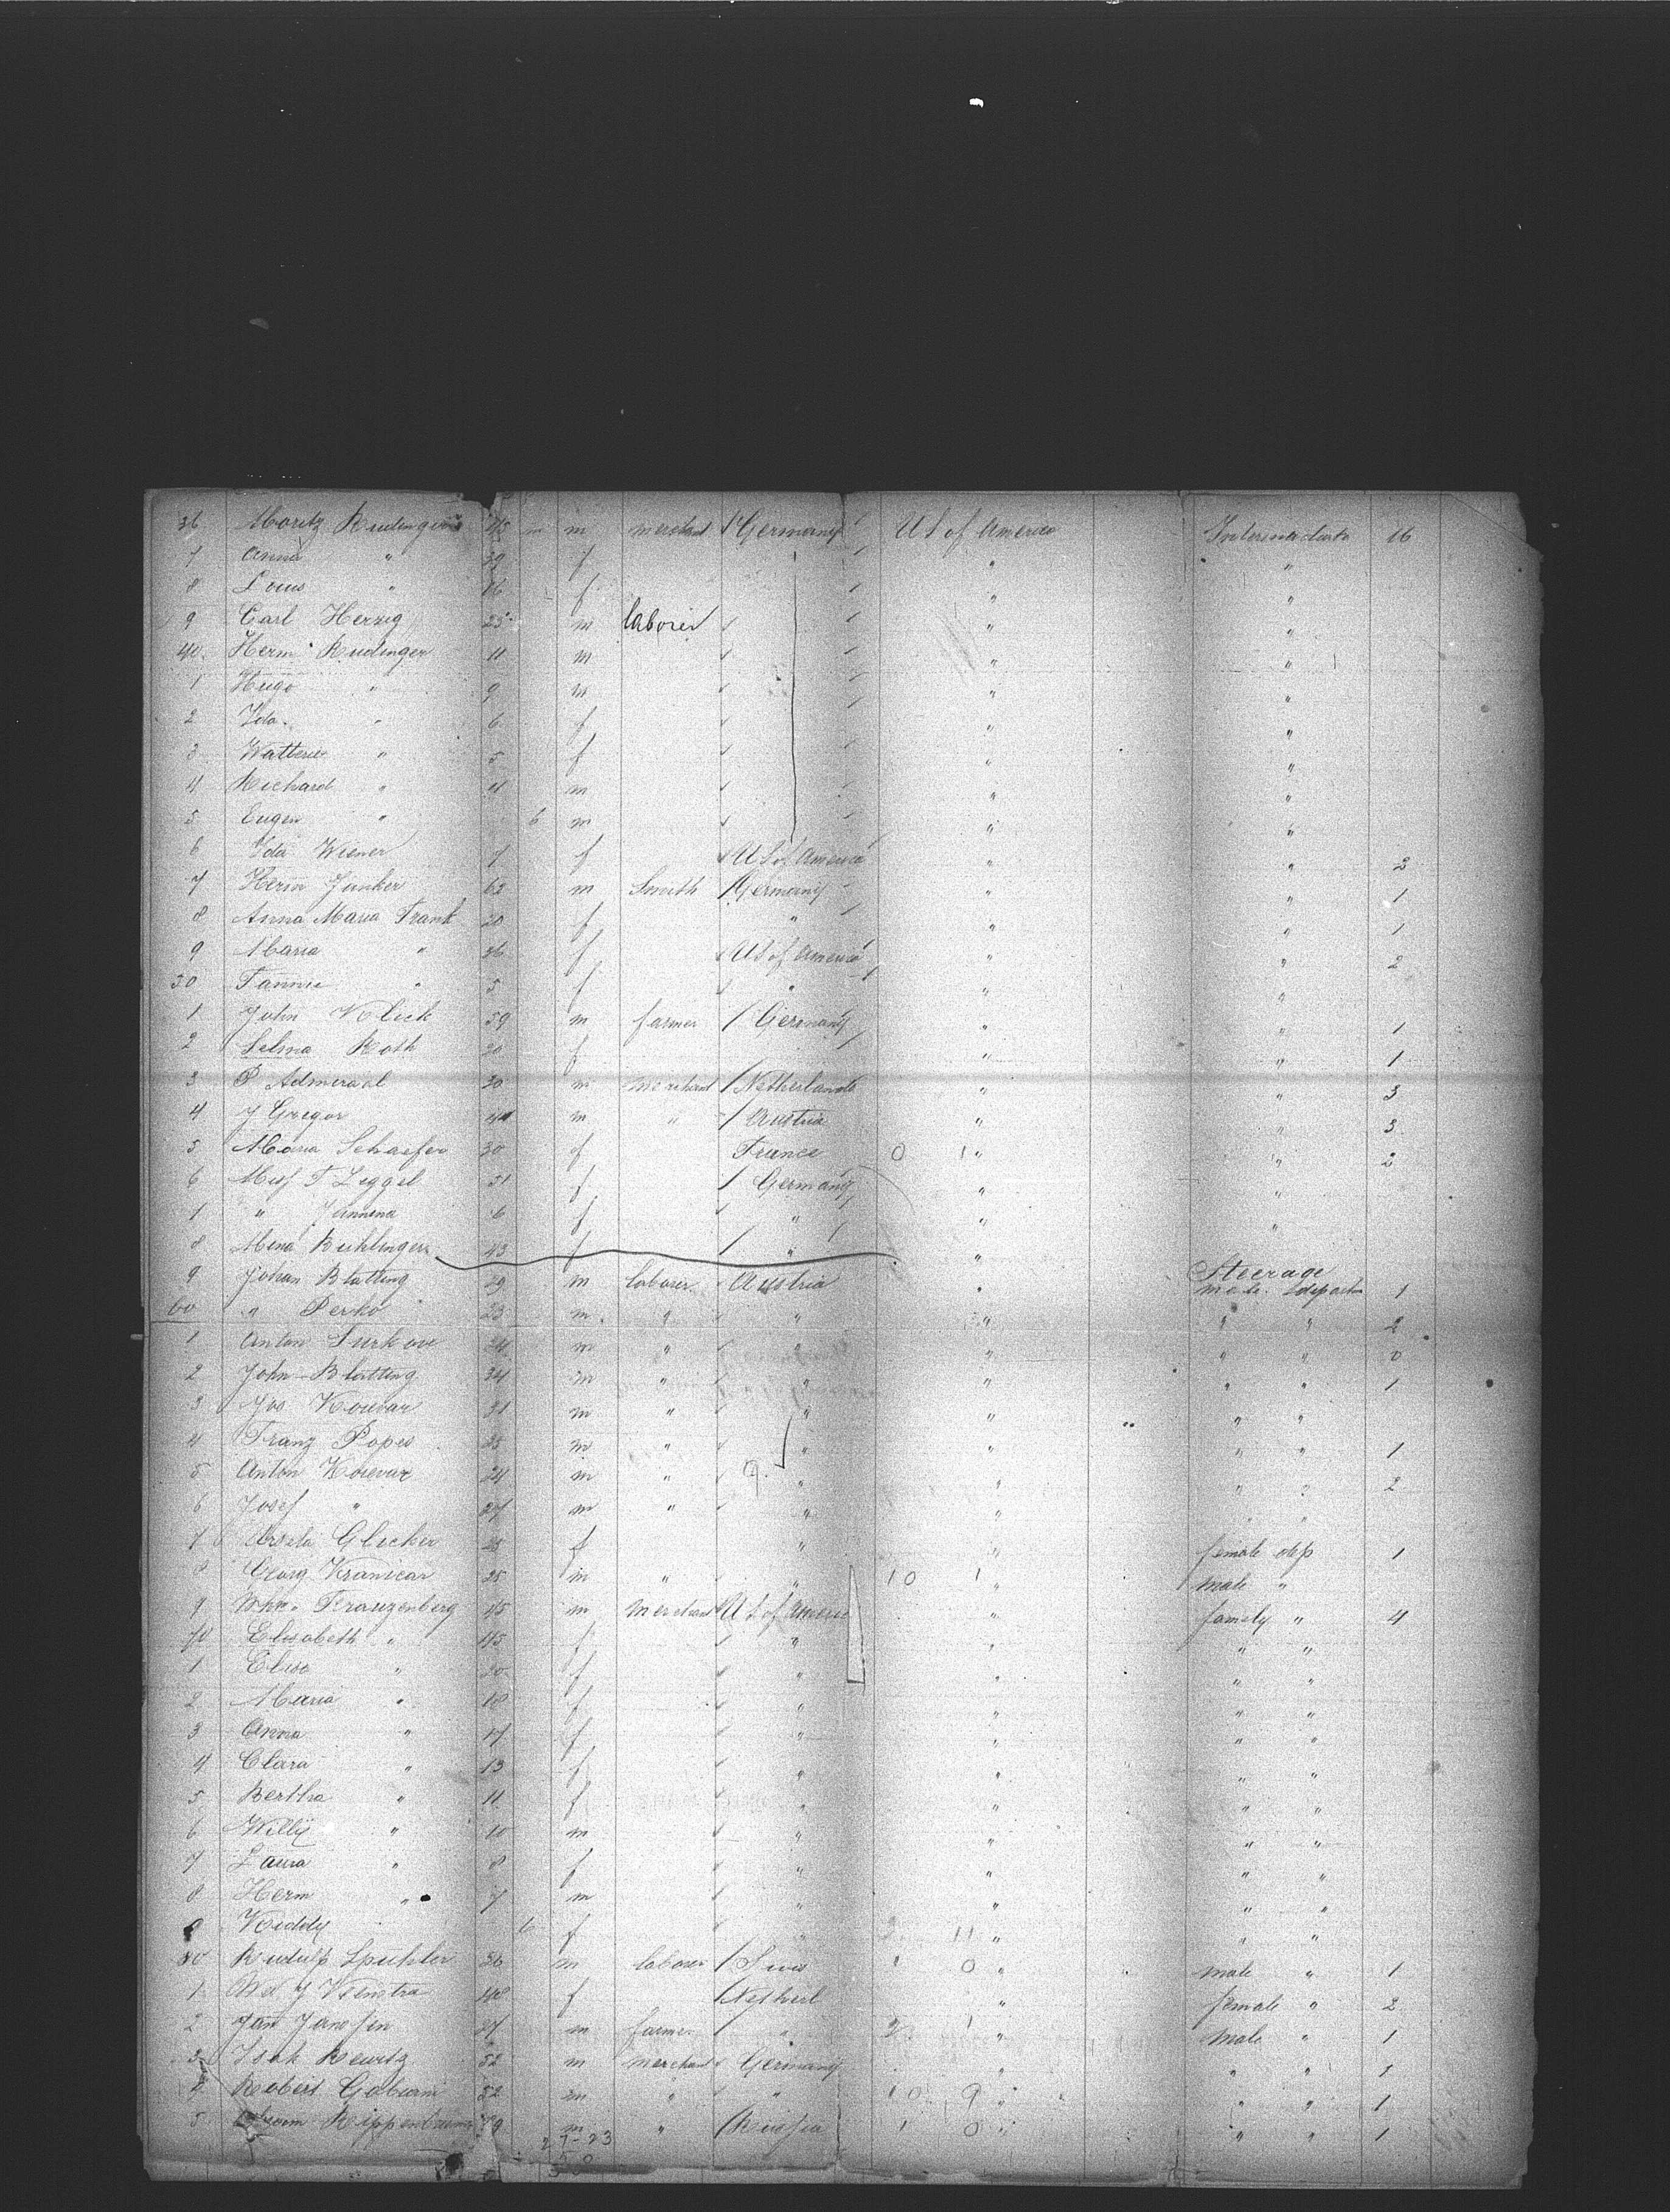 36 Moritz Rudinger 45 m merchant Germany U S of America Intermediate 16
7 Anna " 39 f " "
8 Louis " 16 f " "
9 Carl Herzig 25 m laborer " "
40 Herm Rudinger 11 m " "
1 Hugo " 9 m " "
2 Ida " 6 f " "
3 " 5 f " "
4 Richard " 4 m " "
5 Eugen " 6 m " "
6 Ida Wiener 7 f U S of America " " 2
7 Herm Junker 62 m Smith Germany " " 1
8 Anna Maria Frank 20 f " " " 1
9 Maria " 36 f U S of America " " 2
50 Fannie " 5 f " " "
1 John Klick 59 m farmer Germany " " 1
2 Selma Roth 20 f " " 1
3 P Admiraal 30 m merchant Netherlands " " 3
4 J Gregor m " Austria " " 3
5 Maria Schaefer 30 f France 0 1 " " 2
6 Miss F Zeggel 31 f Germany " "
7 " 6 f " " "
8 Mina Ruhlinger 43 f " "
9 Johan Blatting 29 m laborer Austria " Steerage
male depart 1
60 " Perko 23 m " " " " " 2
1 Anton 24 m " " " " " 0
2 John Blatting 34 m " " " " " 1
3 Jos. 31 m " " " " "
4 Franz Popes 25 m " " " " " 1
5 Anton 24 m " 9 " " " " 2
6 Josef " 27 m " " " " "
7 Ursula Glicker 25 f " " female dep 1
8 Georg Kranicar 25 m " " 10 1 " male "
9 Franzenberg 45 m merchant U S of America " family " 4
70 Elisabeth " 45 f " " " "
1 Elise " 20 f " " " "
2 Maria " 18 f " " " "
3 Anna " 17 f " " " "
4 Clara " 13 f " " " "
5 Bertha " 11 f " " " "
6 Willy " 10 m " " " "
7 Laura " 8 f " " " "
8 Herm " 7 m " " " "
9 Kiddy 6 f " 2 11 " " "
80 Rudolf Spuhler 36 m laborer Swis 1 0 " male " 1
1 48 f Netherl " female " 2
2 Jan Janssen 27 m farmer " 2 1 " male " 1
3 52 m merchant Germany " " " 1
4 Robert 52 m " " 10 9 " " " 1
5 m " Russia 1 0 " " " 1